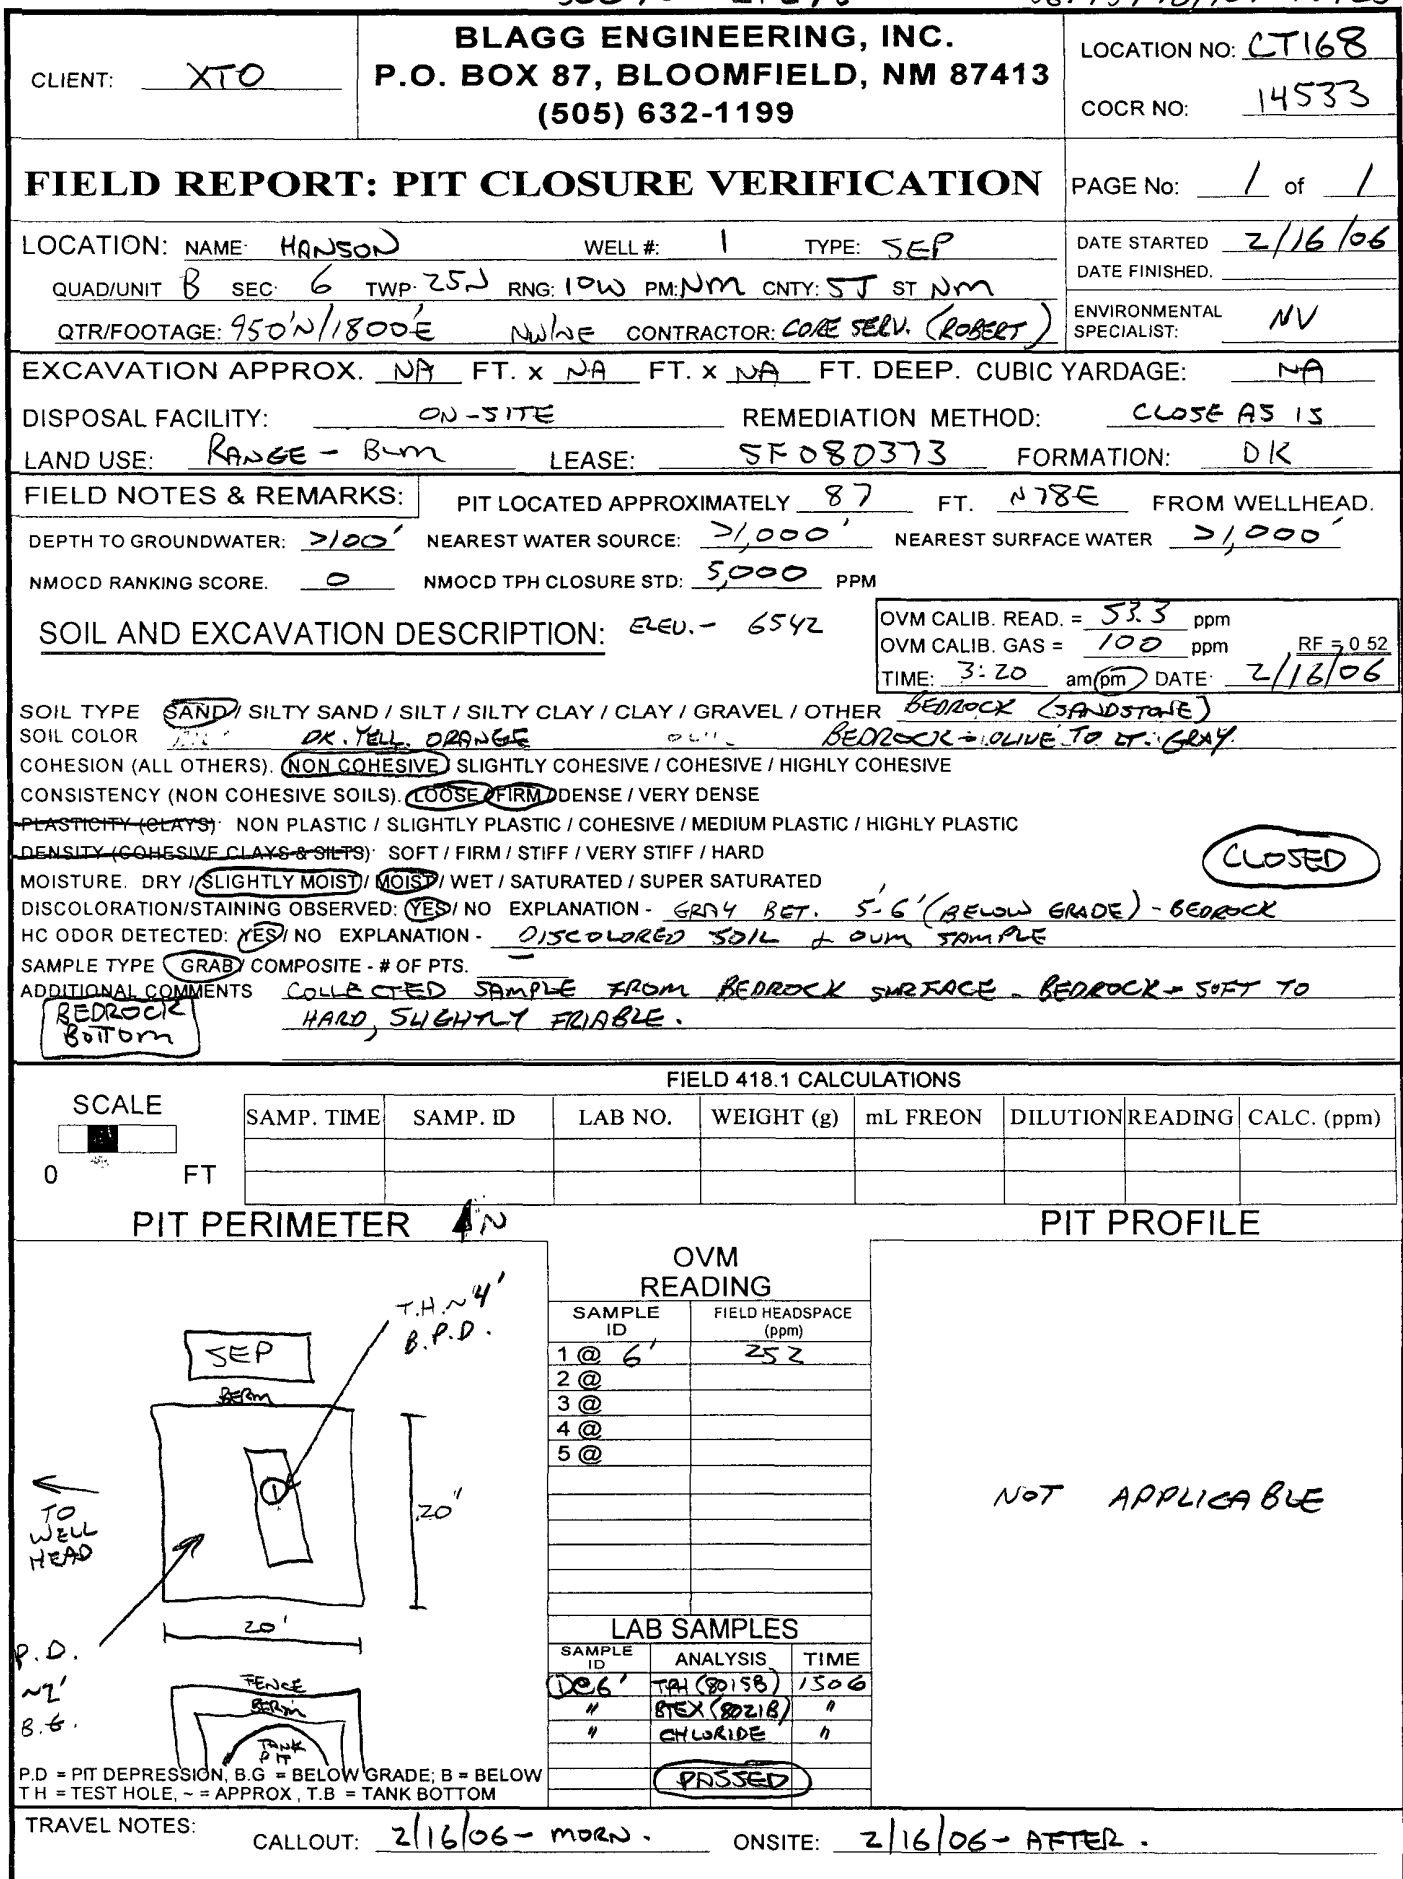 BLAGG ENGINEERING, INC.
P.O. BOX 87, BLOOMFIELD, NM 87413
(505) 632-1199
CLIENT: XTO
LOCATION NO: CT168
COCR NO: 14533
FIELD REPORT: PIT CLOSURE VERIFICATION
PAGE No: 1 of 1
LOCATION: NAME: HANSON WELL #: 1 TYPE: SEP
QUAD/UNIT B SEC: 6 TWP: 25N RNG: 10W PM: NM CNTY: SJ ST NM
QTR/FOOTAGE: 950'N/1800'E NW/NE CONTRACTOR: CORE SERV. (ROBERT)
DATE STARTED 2/16/06
DATE FINISHED.
ENVIRONMENTAL SPECIALIST: NV
EXCAVATION APPROX. NA FT. x NA FT. x NA FT. DEEP. CUBIC YARDAGE: NA
DISPOSAL FACILITY: ON-SITE REMEDIATION METHOD: CLOSE AS IS
LAND USE: RANGE - BLM LEASE: SF 080373 FORMATION: DK
FIELD NOTES & REMARKS: PIT LOCATED APPROXIMATELY 87 FT. N78E FROM WELLHEAD.
DEPTH TO GROUNDWATER: >100' NEAREST WATER SOURCE: >1,000' NEAREST SURFACE WATER >1,000'
NMOCD RANKING SCORE. 0 NMOCD TPH CLOSURE STD: 5,000 PPM
SOIL AND EXCAVATION DESCRIPTION: ELEV. - 6542
OVM CALIB. READ. = 53.3 ppm
OVM CALIB. GAS = 100 ppm RF = 0 52
TIME: 3:20 am/pm DATE 2/16/06
SOIL TYPE SAND / SILTY SAND / SILT / SILTY CLAY / CLAY / GRAVEL / OTHER BEDROCK (SANDSTONE)
SOIL COLOR DK. YELL. ORANGE BEDROCK - OLIVE TO LT. GRAY.
COHESION (ALL OTHERS). NON COHESIVE / SLIGHTLY COHESIVE / COHESIVE / HIGHLY COHESIVE
CONSISTENCY (NON COHESIVE SOILS). LOOSE / FIRM / DENSE / VERY DENSE
PLASTICITY (CLAYS) NON PLASTIC / SLIGHTLY PLASTIC / COHESIVE / MEDIUM PLASTIC / HIGHLY PLASTIC
DENSITY (COHESIVE CLAYS & SILTS) SOFT / FIRM / STIFF / VERY STIFF / HARD
CLOSED
MOISTURE. DRY / SLIGHTLY MOIST / MOIST / WET / SATURATED / SUPER SATURATED
DISCOLORATION/STAINING OBSERVED: YES / NO EXPLANATION - GRAY BET. 5-6' (BELOW GRADE) - BEDROCK
HC ODOR DETECTED: YES / NO EXPLANATION - DISCOLORED SOIL & OVM SAMPLE
SAMPLE TYPE GRAB / COMPOSITE - # OF PTS.
ADDITIONAL COMMENTS COLLECTED SAMPLE FROM BEDROCK SURFACE. BEDROCK - SOFT TO
HARD, SLIGHTLY FRIABLE.
BEDROCK
BOTTOM
FIELD 418.1 CALCULATIONS
SCALE
0 FT
SAMP. TIME SAMP. ID LAB NO. WEIGHT (g) mL FREON DILUTION READING CALC. (ppm)
PIT PERIMETER N
PIT PROFILE
OVM
READING
SAMPLE ID FIELD HEADSPACE (ppm)
1 @ 6' 252
2 @
3 @
4 @
5 @
T.H. ~ 4'
B.P.D.
SEP
BERM
1
20'
20'
TO
WELL
HEAD
P.D.
~2'
B.G.
FENCE
BERM
TANK
PIT
NOT APPLICABLE
LAB SAMPLES
SAMPLE ID ANALYSIS TIME
1@6' TPH (8015B) 1506
" BTEX (8021B) "
" CHLORIDE "
PASSED
P.D = PIT DEPRESSION, B.G = BELOW GRADE; B = BELOW
T H = TEST HOLE, ~ = APPROX , T.B = TANK BOTTOM
TRAVEL NOTES: CALLOUT: 2/16/06 - MORN. ONSITE: 2/16/06 - AFTER.